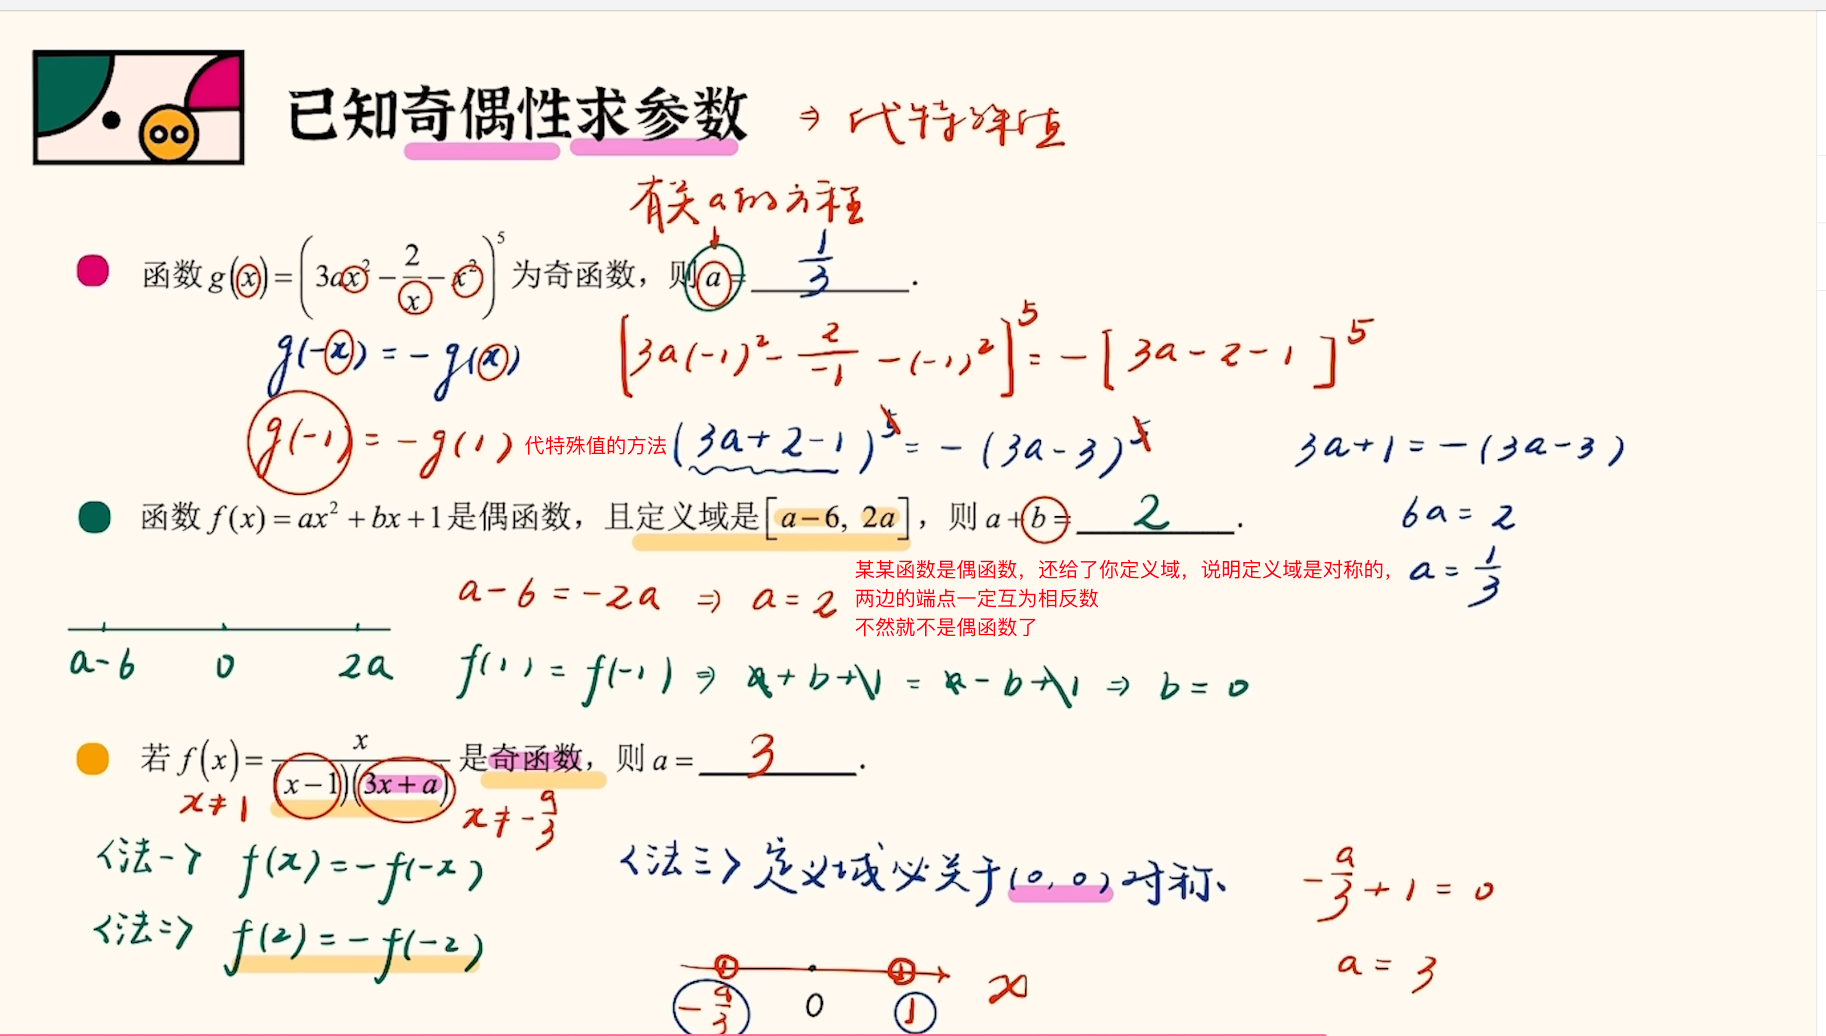 已知奇偶性求参数 ⇒ 代特殊值
有关a的方程
函数 g(x)=(3ax²-2/x-x²)⁵ 为奇函数，则 a= 1/3 .
g(-x)=-g(x) [3a(-1)²-2/-1-(-1)²]⁵=-[3a-2-1]⁵
g(-1)=-g(1) 代特殊值的方法 (3a+2-1)⁵=-(3a-3)⁵ 3a+1=-(3a-3)
函数 f(x)=ax²+bx+1是偶函数，且定义域是[a-6, 2a]，则 a+b= 2 .
6a=2
某某函数是偶函数，还给了你定义域，说明定义域是对称的，
a=1/3
a-6=-2a ⇒ a=2 两边的端点一定互为相反数
不然就不是偶函数了
a-6 0 2a
f(1)=f(-1) ⇒ a+b+1=a-b+1 ⇒ b=0
若 f(x)=x/(x-1)(3x+a) 是奇函数，则 a= 3 .
x≠1 x≠-a/3
<法一> f(x)=-f(-x)
<法三> 定义域必关于(0,0)对称、
-a/3+1=0
<法二> f(2)=-f(-2)
a=3
-a/3 0 1 x